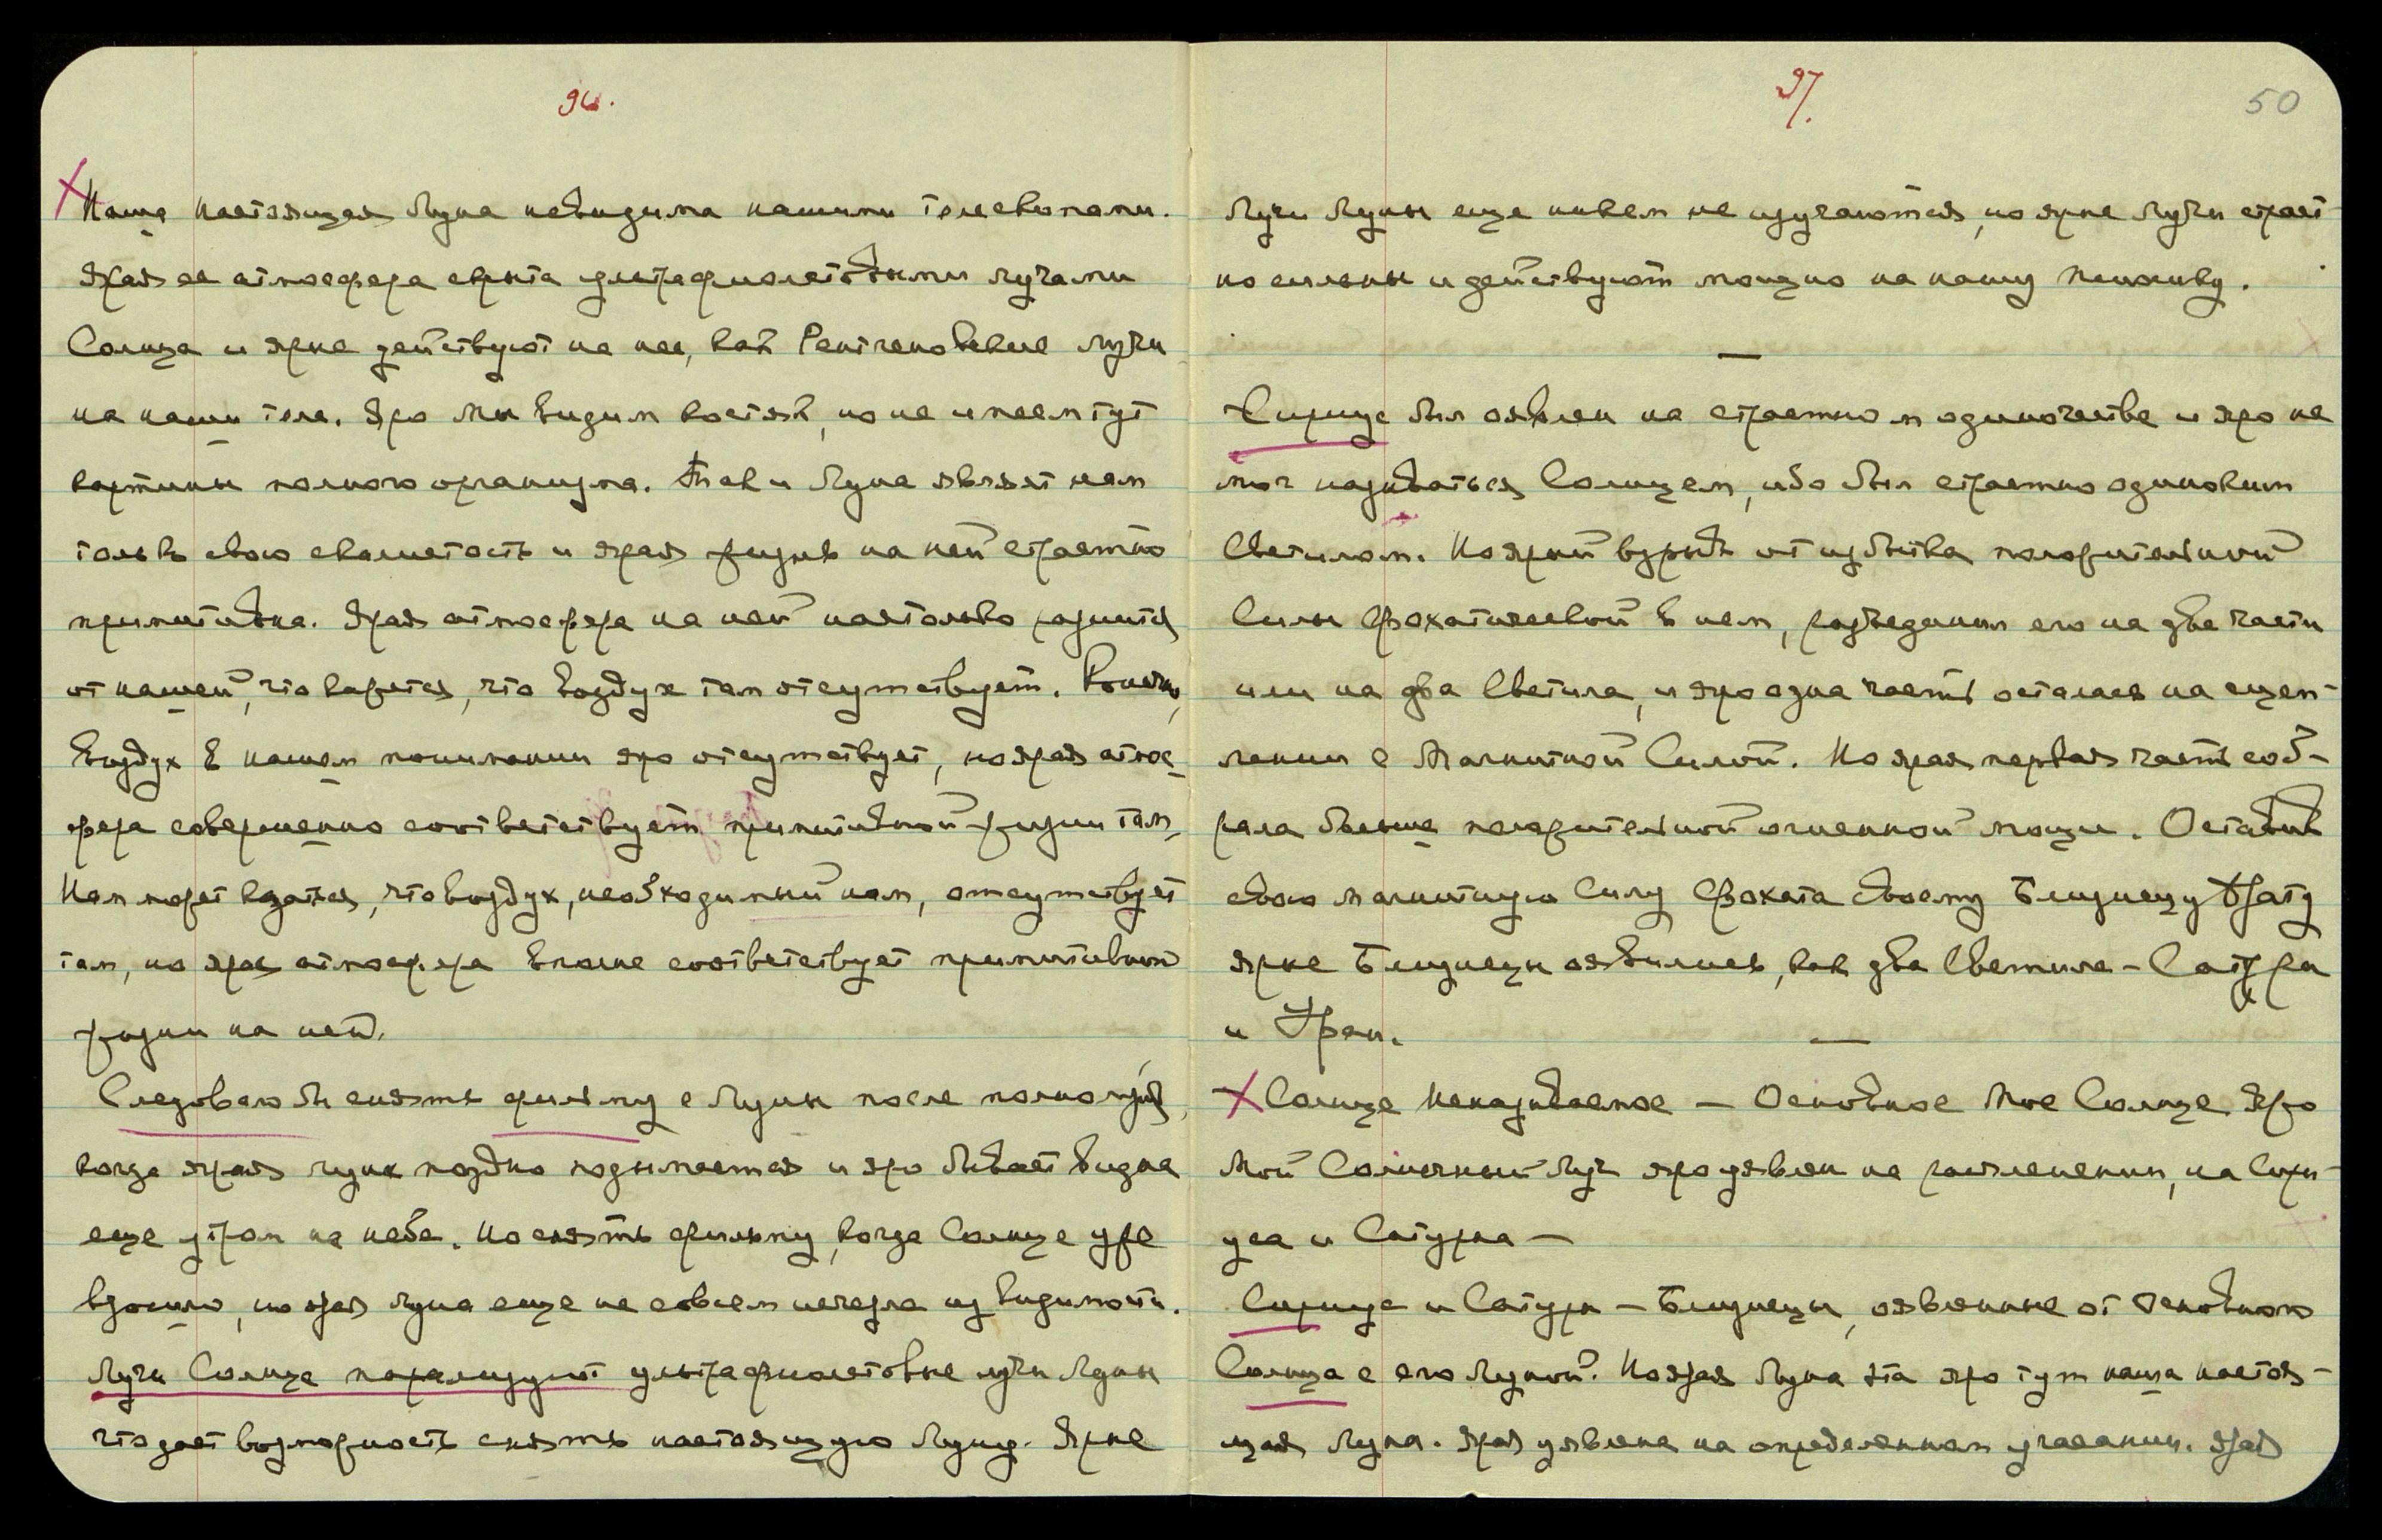 96.
Наша настоящая Луна невидима нашими телескопами.
Ярая ее атмосфера скрыта ультрафиолетовыми лучами
Солнца и ярые действуют на нее, как Рентгеновские лучи
на наши тела. Яро мы видим костяк, но не имеем тут
картины полного организма. Так и Луна являет нам
только свою скалистость и ярая жизнь на ней страстно
примитивна. Ярая атмосфера на ней настолько разнится
от нашей, что кажется, что воздух там отсутствует. Конечно,
воздух в нашем понимании яро отсутствует, но ярая атмос-
фера совершенно соответствует примитивной жизни там,
Нам может казаться, что воздух, необходимый нам, отсутствует
там, но ярая атмосфера вполне соответствует примитивной
жизни на ней.
Следовало бы снять фильму с Луны после полнолуния,
когда ярая луна поздно подымается и яро бывает видна
еще утром на небе. Но снять фильму, когда Солнце уже
взошло, но ярая луна еще не совсем исчезла из видимости.
Лучи Солнца парализуют ультрафиолетовые лучи Луны
что дает возможность снять настоящую Луну. Ярые
97.
50
Лучи Луны еще никем не изучаются, но ярые Лучи страст-
но сильны и действуют мощно на нашу психику.
—
Сириус был оявлен на страстном одиночестве и яро не
мог называться Солнцем, ибо был страстно одиноким
Светилом. Но ярый взрыв от избытка положительной
Силы Фохатической в нем, разъединил его на две части
или на два Светила, и яро одна часть осталась на сцеп-
лении с Магнитной Силой. Но ярая первая часть соб-
рала больше положительной огненной мощи. Оставив
свою магнитную Силу Фохата своему Близнецу Брату
ярые Близнецы оявились, как два Светила – Сатурн
и Уран.
—
Солнце Неназываемое — Основное Мое Солнце. Яро
Мой Солнечный Луч яро уявлен на расчленении, на Сири-
уса и Сатурна —
Сириус и Сатурн – Близнецы, оявленные от Основного
Солнца с его Луной. Но ярая Луна эта яро тут наша настоя-
щая Луна. Ярая уявлена на определенном угасании. Ярая